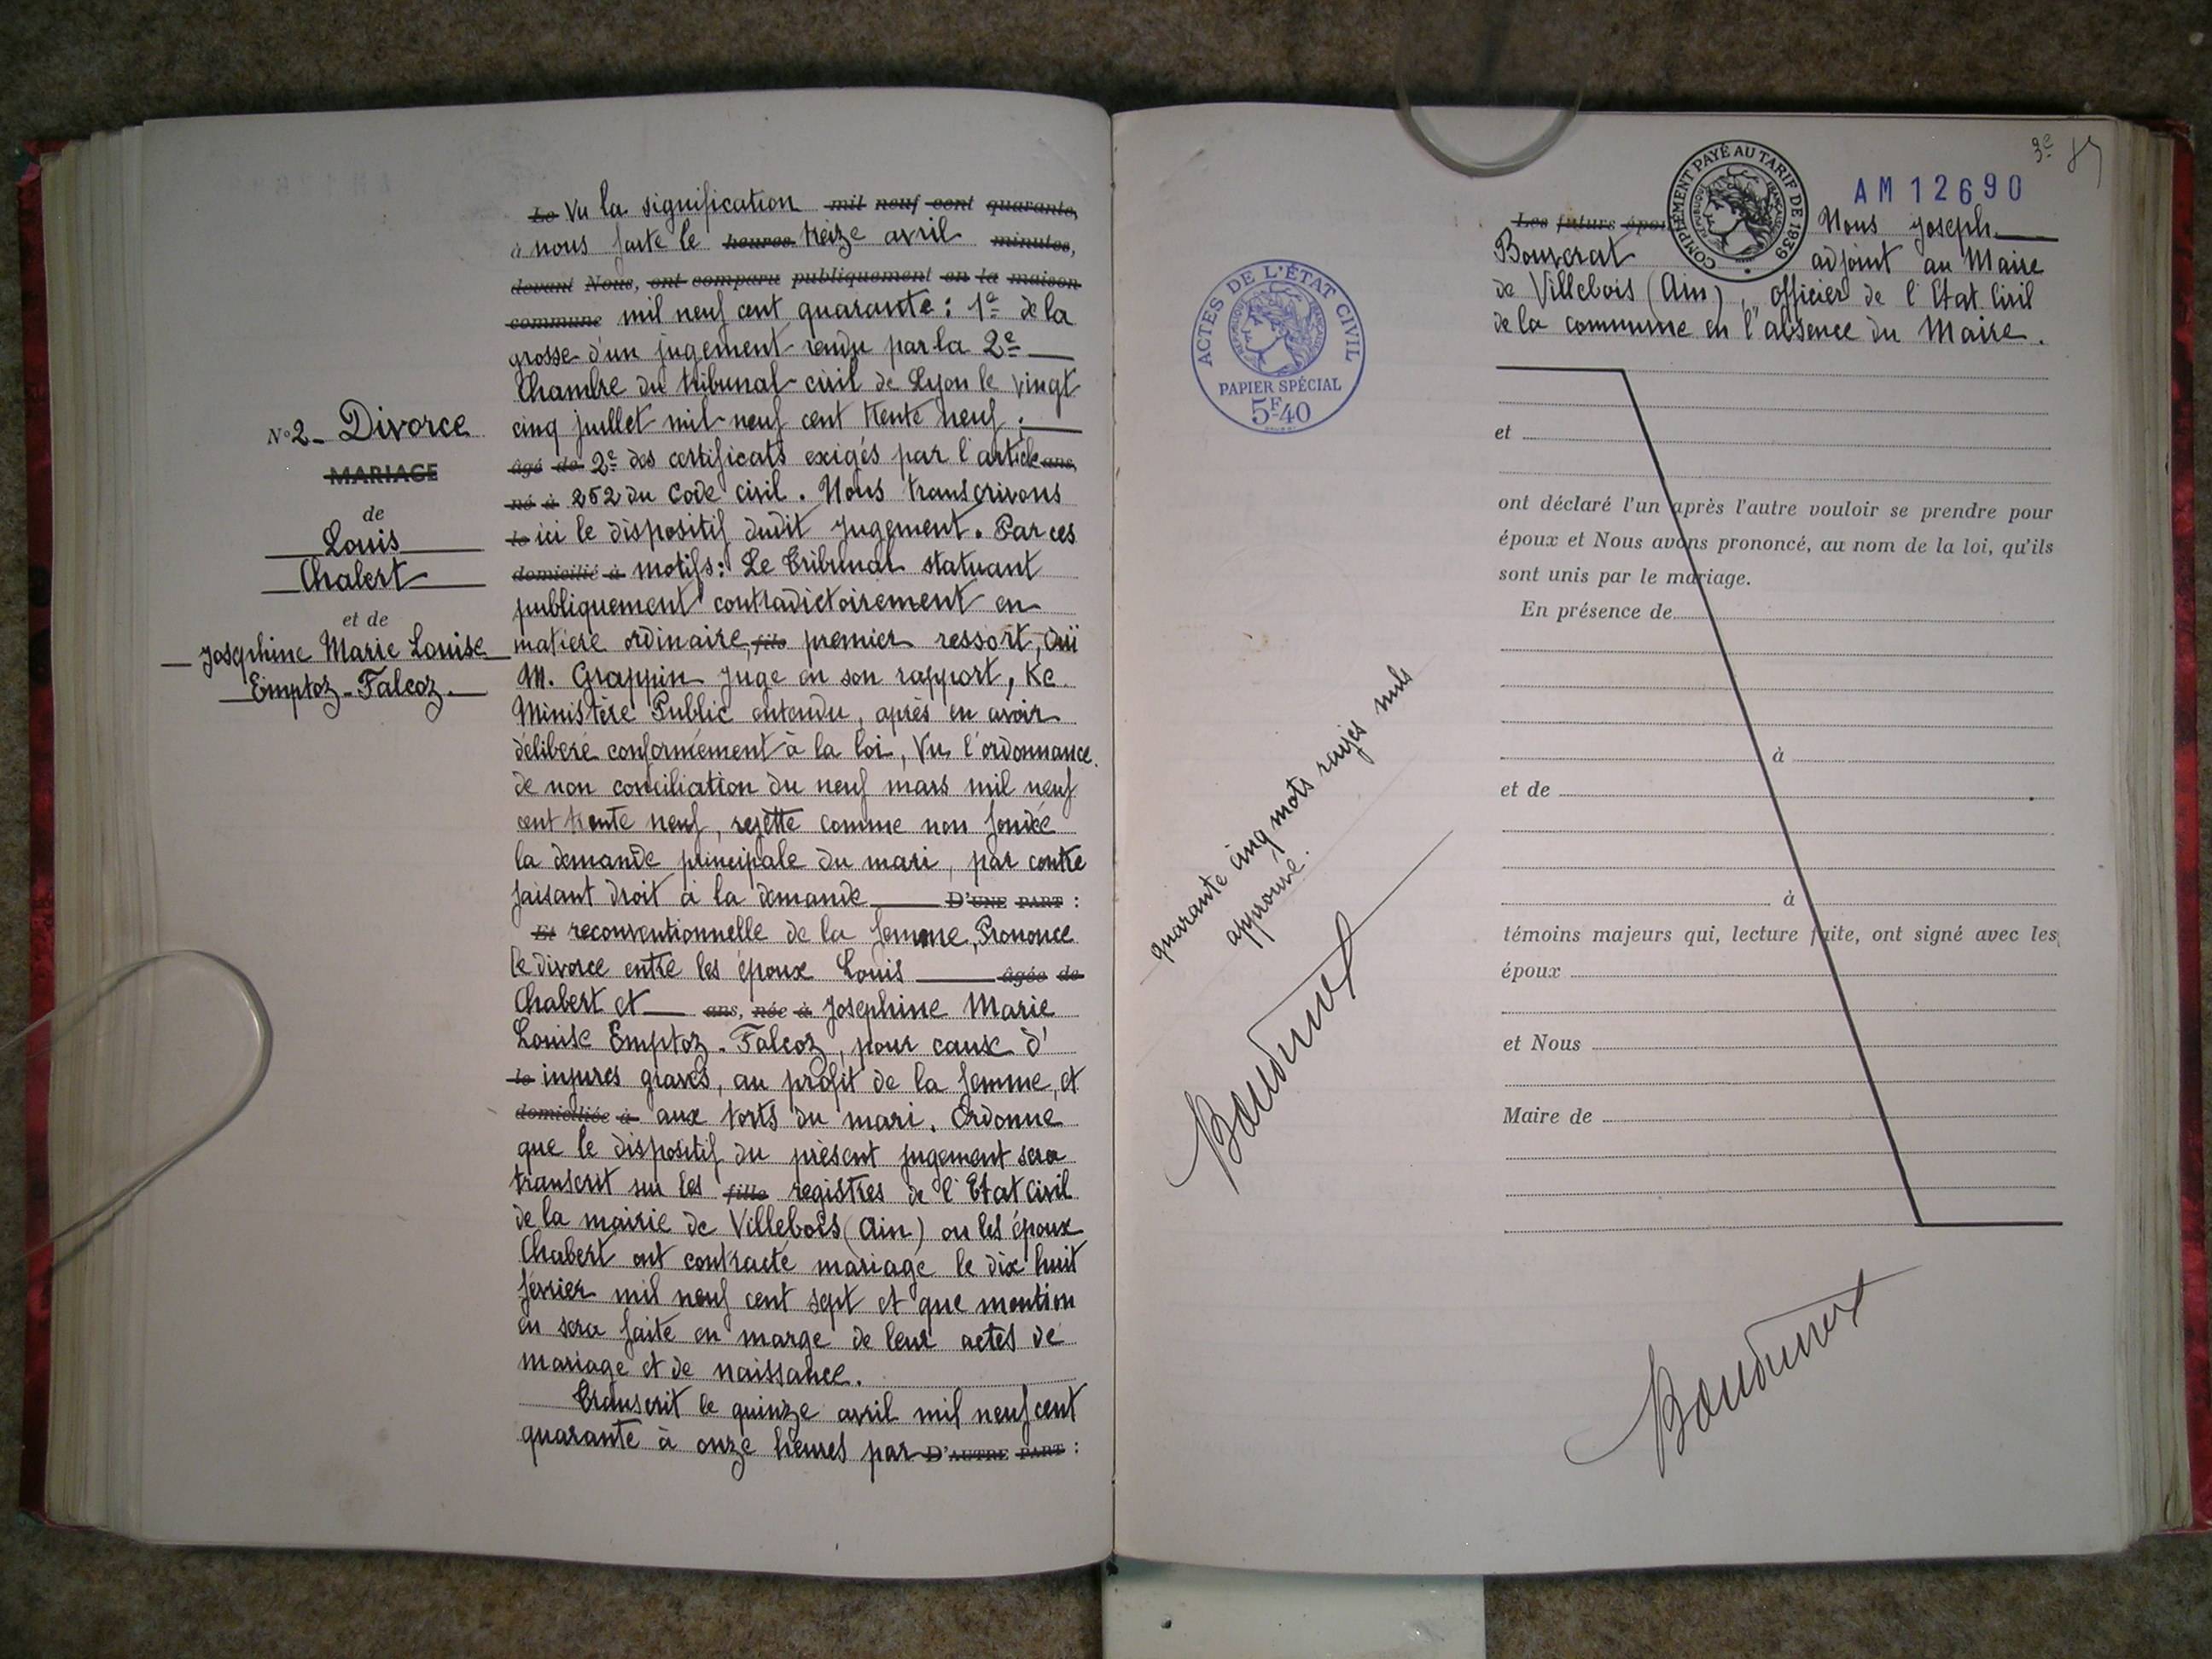 N° 2 - Divorce
MARIAGE
de
Louis
Chabert
et de
Josephine Marie Louise
Emptoz-Falcoz.
Le Vu la signification mil neuf cent quarante,
à nous faite le heures treize avril minutes,
devant Nous, ont comparu publiquement en la maison
commune mil neuf cent quarante : 1e de la
grosse d'un jugement rendu par la 2e
Chambre du tribunal civil de Lyon le vingt
cinq juillet mil neuf cent trente neuf ;
âgé de 2e des certificats exigés par l'article ans,
né à 252 du Code civil. Nous transcrivons
le ici le dispositif dudit jugement. Par ces
domicilié à motifs : Le Tribunal statuant
publiquement contradictoirement en
matière ordinaire, fils premier ressort, ouï
M. Grappin Juge en son rapport, Le
Ministère Public entendu, après en avoir
délibéré conformément à la loi, Vu l'ordonnance
de non conciliation du neuf mars mil neuf
cent trente neuf, rejette comme non fondée
la demande principale du mari, par contre
faisant droit à la demande D'UNE PART :
Et reconventionnelle de la femme, Prononce
le divorce entre les époux Louis âgée de
Chabert et ans, née à Josephine Marie
Louise Emptoz-Falcoz, pour cause d'
le injures graves, au profit de la femme, et
domiciliée à aux torts du mari. Ordonne
que le dispositif du présent jugement sera
transcrit sur les fille registres de l'Etat Civil
de la mairie de Villebois (Ain) ou les époux
Chabert ont contracté mariage le dix huit
février mil neuf cent sept et que mention
en sera faite en marge de leur actes de
mariage et de naissance.
Transcrit le quinze avril mil neuf cent
quarante à onze heures par D'AUTRE PART :
ACTES DE L'ÉTAT CIVIL
RÉPUBLIQUE FRANÇAISE
PAPIER SPÉCIAL
5F40
quarante cinq mots rayés nuls
approuvé.
3e
COMPLÉMENT PAYÉ AU TARIF DE 1939
RÉPUBLIQUE FRANÇAISE
AM 12690
Les futurs épou Nous Joseph
adjoint au Maire
de Villebois (Ain), officier de l'Etat Civil
de la commune en l'absence du Maire.
et
ont déclaré l'un après l'autre vouloir se prendre pour
époux et Nous avons prononcé, au nom de la loi, qu'ils
sont unis par le mariage.
En présence de
à
et de
à
témoins majeurs qui, lecture faite, ont signé avec les
époux
et Nous
Maire de